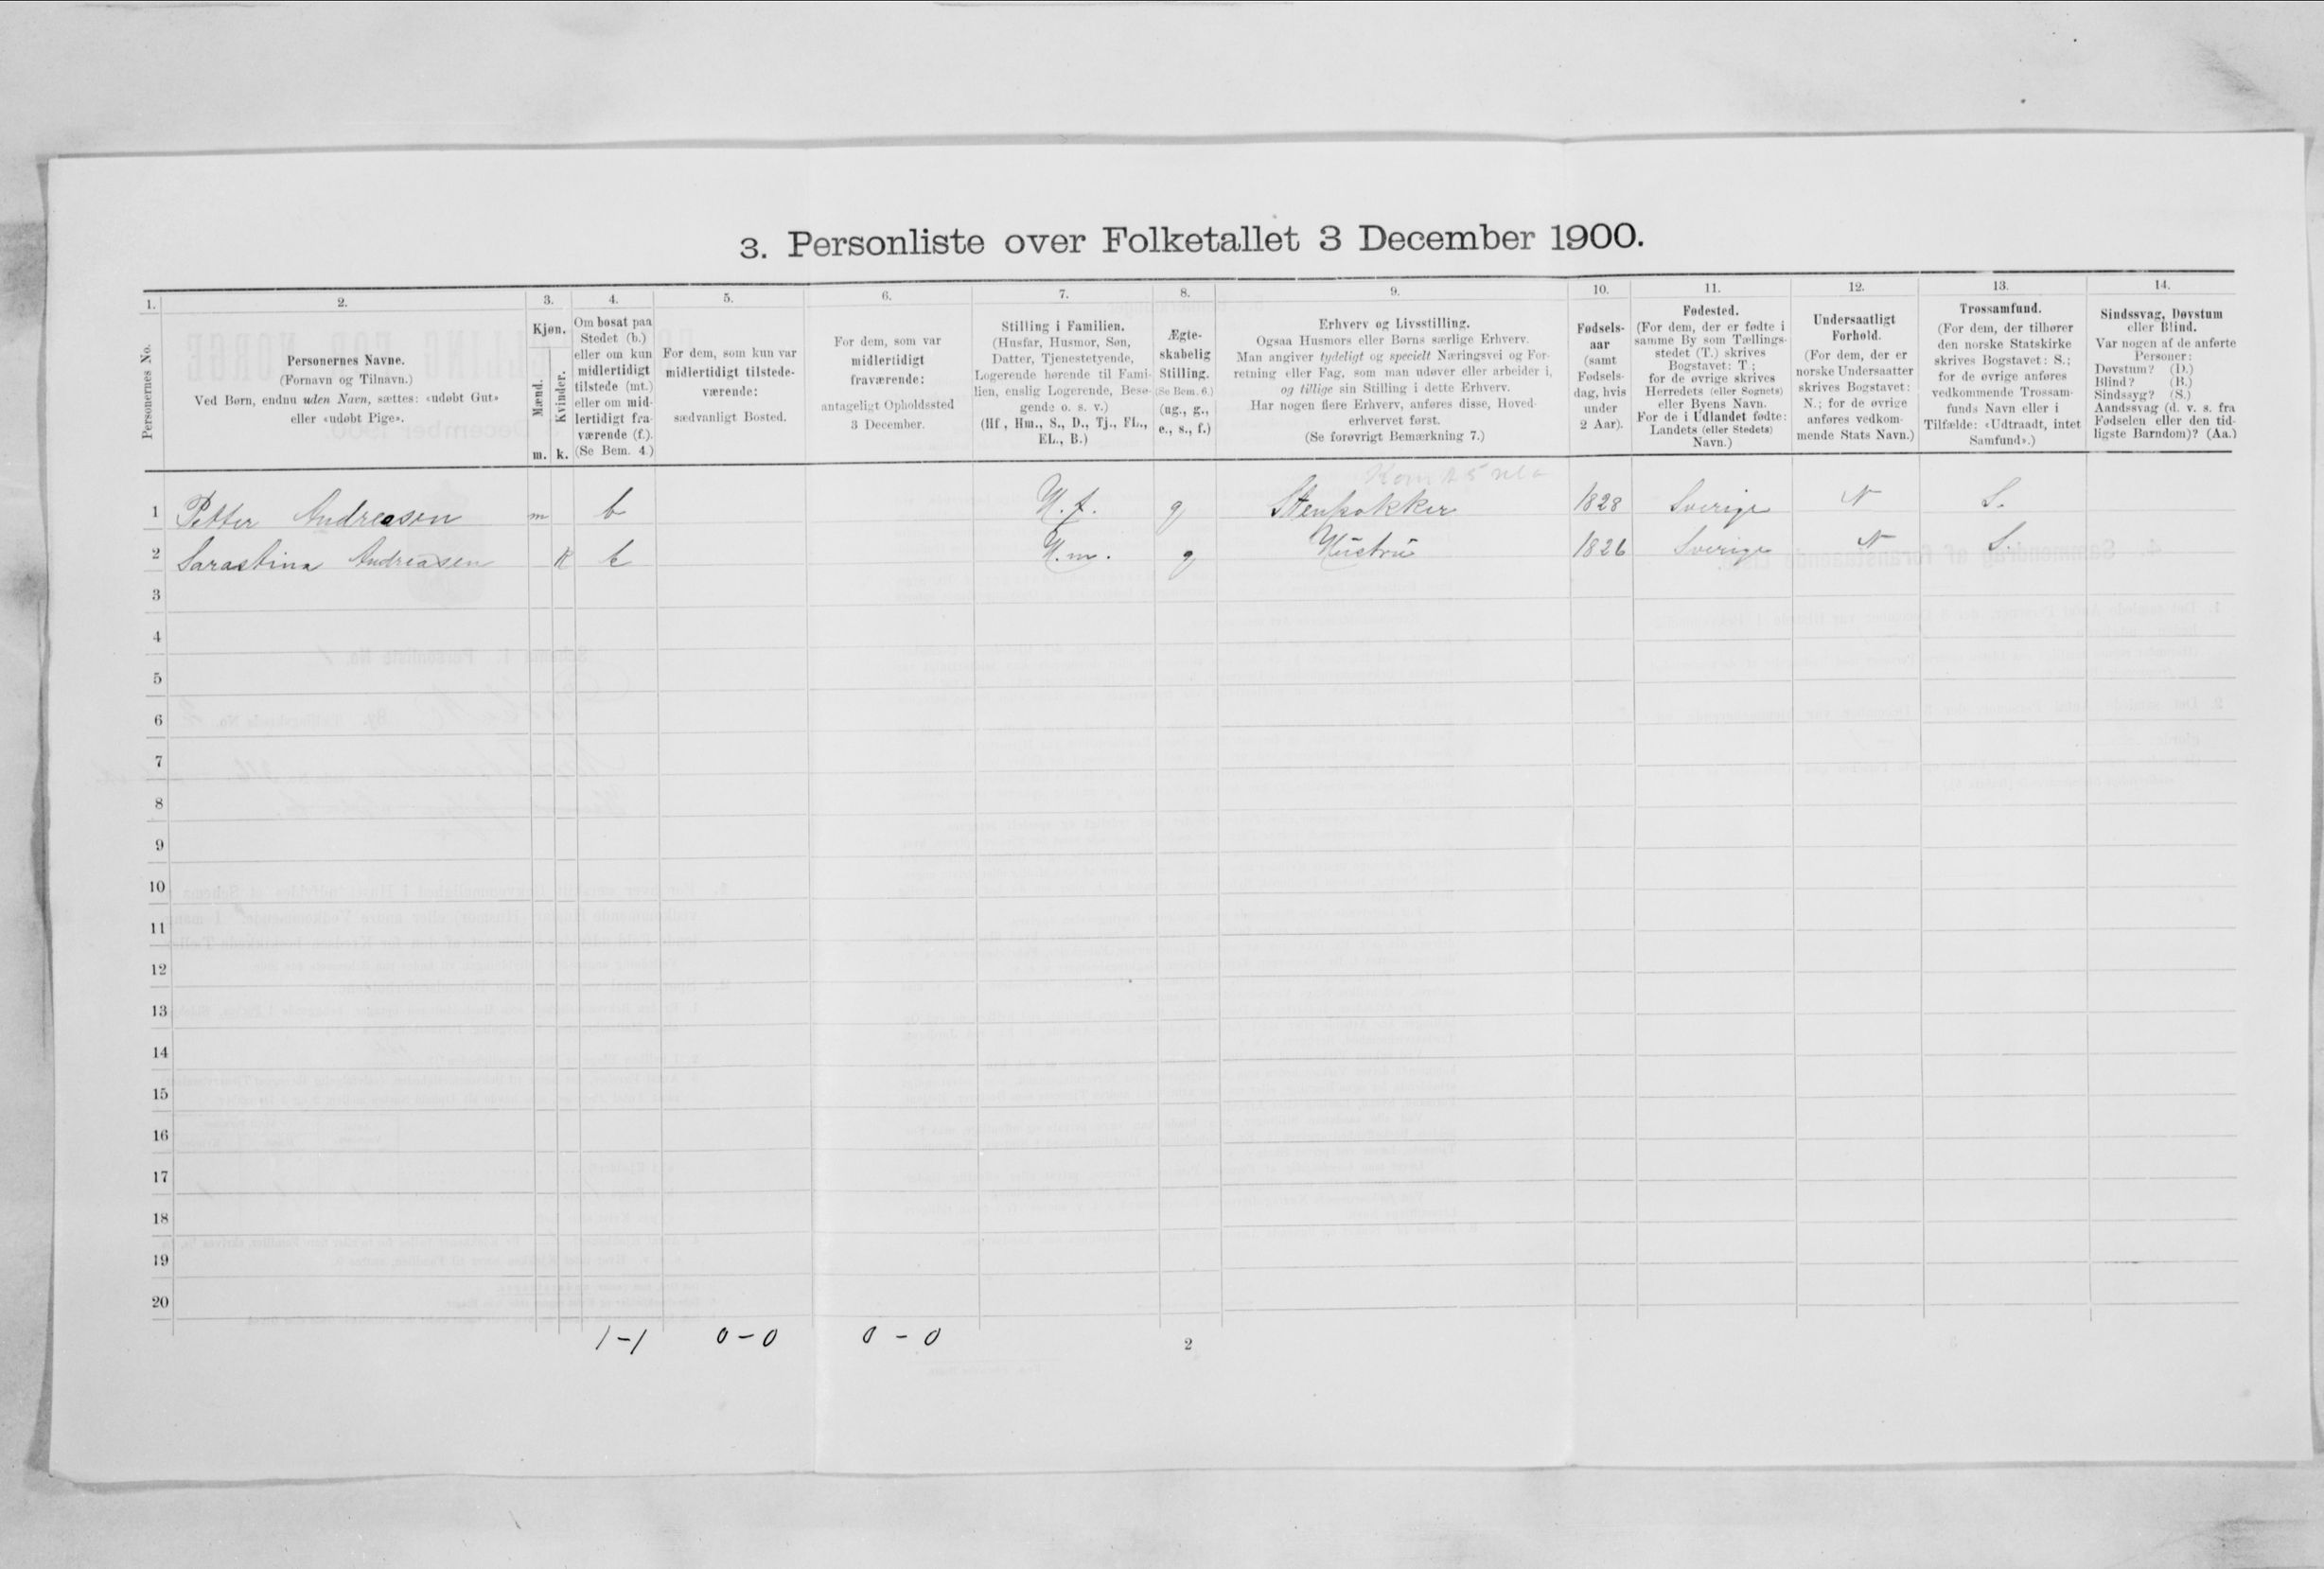 3. Personliste over Folketallet 3 December 1900.
1. 2. 3. 4. 5. 6. 7. 8. 9. 10. 11. 12. 13. 14.
Personernes No.
Personernes Navne.
(Fornavn og Tilnavn.)
Ved Børn, endnu uden Navn, sættes: «udøbt Gut»
eller «udøbt Pige».
Kjøn.
Mænd.
Kvinder.
m. k.
Om bosat paa
Stedet (b.)
eller om kun
midlertidigt
tilstede (mt.)
eller om mid-
lertidigt fra-
værende (f.).
(Se Bem. 4.)
For dem, som kun var
midlertidigt tilstede-
værende:
sædvanligt Bosted.
For dem, som var
midlertidigt
fraværende:
antageligt Opholdssted
3 December.
Stilling i Familien.
(Husfar, Husmor, Søn,
Datter, Tjenestetyende,
Logerende hørende til Fami-
lien, enslig Logerende, Besø-
gende o. s. v.)
(Hf., Hm., S., D., Tj., FL.,
EL., B.)
Ægte-
skabelig
Stilling.
(Se Bem. 6.)
(ug., g.,
e., s., f.)
Erhverv og Livsstilling.
Ogsaa Husmors eller Børns særlige Erhverv.
Man angiver tydeligt og specielt Næringsvei og For-
retning eller Fag, som man udøver eller arbeider i,
og tillige sin Stilling i dette Erhverv.
Har nogen flere Erhverv, anføres disse, Hoved-
erhvervet først.
(Se forøvrigt Bemærkning 7.)
Fødsels-
aar
(samt
Fødsels-
dag, hvis
under
2 Aar).
Fødested.
(For dem, der er fødte i
samme By som Tællings-
stedet (T.) skrives
Bogstavet: T.;
for de øvrige skrives
Herredets (eller Sognets)
eller Byens Navn.
For de i Udlandet fødte:
Landets (eller Stedets)
Navn.)
Undersaatligt
Forhold.
(For dem, der er
norske Undersaatter
skrives Bogstavet:
N.; for de øvrige
anføres vedkom-
mende Stats Navn.)
Trossamfund.
(For dem, der tilhører
den norske Statskirke
skrives Bogstavet: S.;
for de øvrige anføres
vedkommende Trossam-
funds Navn eller i
Tilfælde: «Udtraadt, intet
Samfund».)
Sindssvag, Døvstum
eller Blind.
Var nogen af de anførte
Personer:
Døvstum? (D.)
Blind? (B.)
Sindssyg? (S.)
Aandssvag (d. v. s. fra
Fødselen eller den tid-
ligste Barndom)? (Aa.)
1 Petter Andreasen m b H.f. g Stenhokker 1828 Sverige N S.
2 Sarastina Andreasen K b H.m. g Hustru 1826 Sverige N S.
3
4
5
6
7
8
9
10
11
12
13
14
15
16
17
18
19
20
1-1 0-0 0-0
2